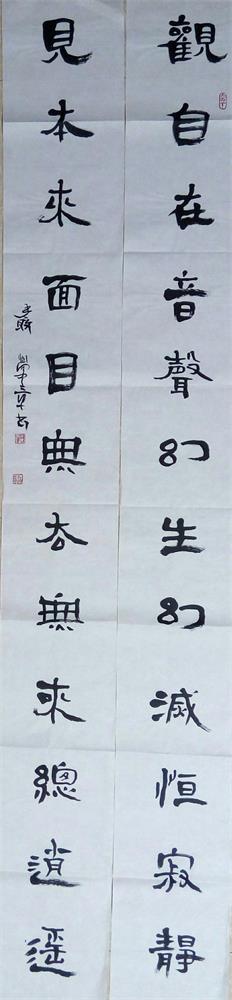 觀自在音聲幻生幻滅恒寂靜
見本來面目無去無來總逍遥